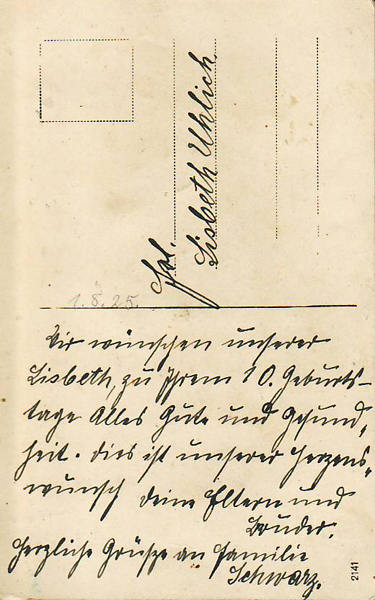 Frl.
Lisbeth Uhlich
1.8.25.
Wir wünschen unserer
Lisbeth, zu Ihrem 10. Geburts-
tage Alles Gute und Gesund-
heit. dies ist unserer Herzens-
wunsch deine Eltern und
Bruder.
Herzliche Grüsze an Familie
Schwarz.
2141